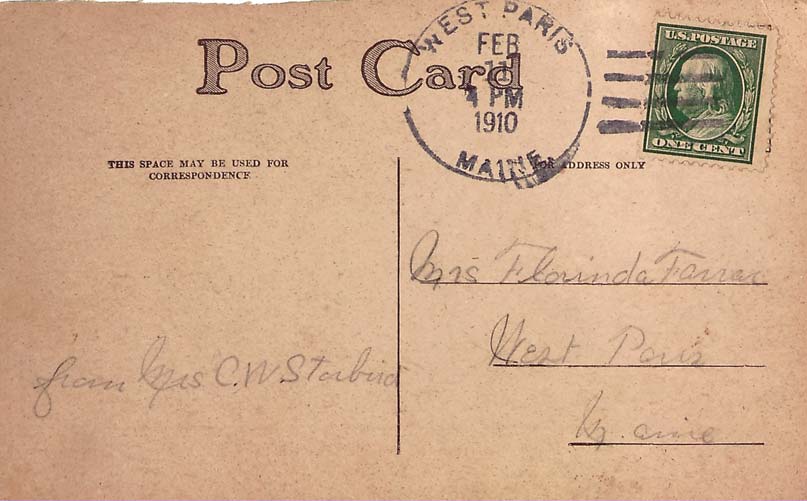 Post Card
WEST PARIS
FEB
11
4 PM
1910
MAINE
U.S. POSTAGE
ONE CENT
THIS SPACE MAY BE USED FOR
CORRESPONDENCE
FOR ADDRESS ONLY
Mrs Florinda Farrar
West Paris
Maine
from Mrs C.W. Starbird